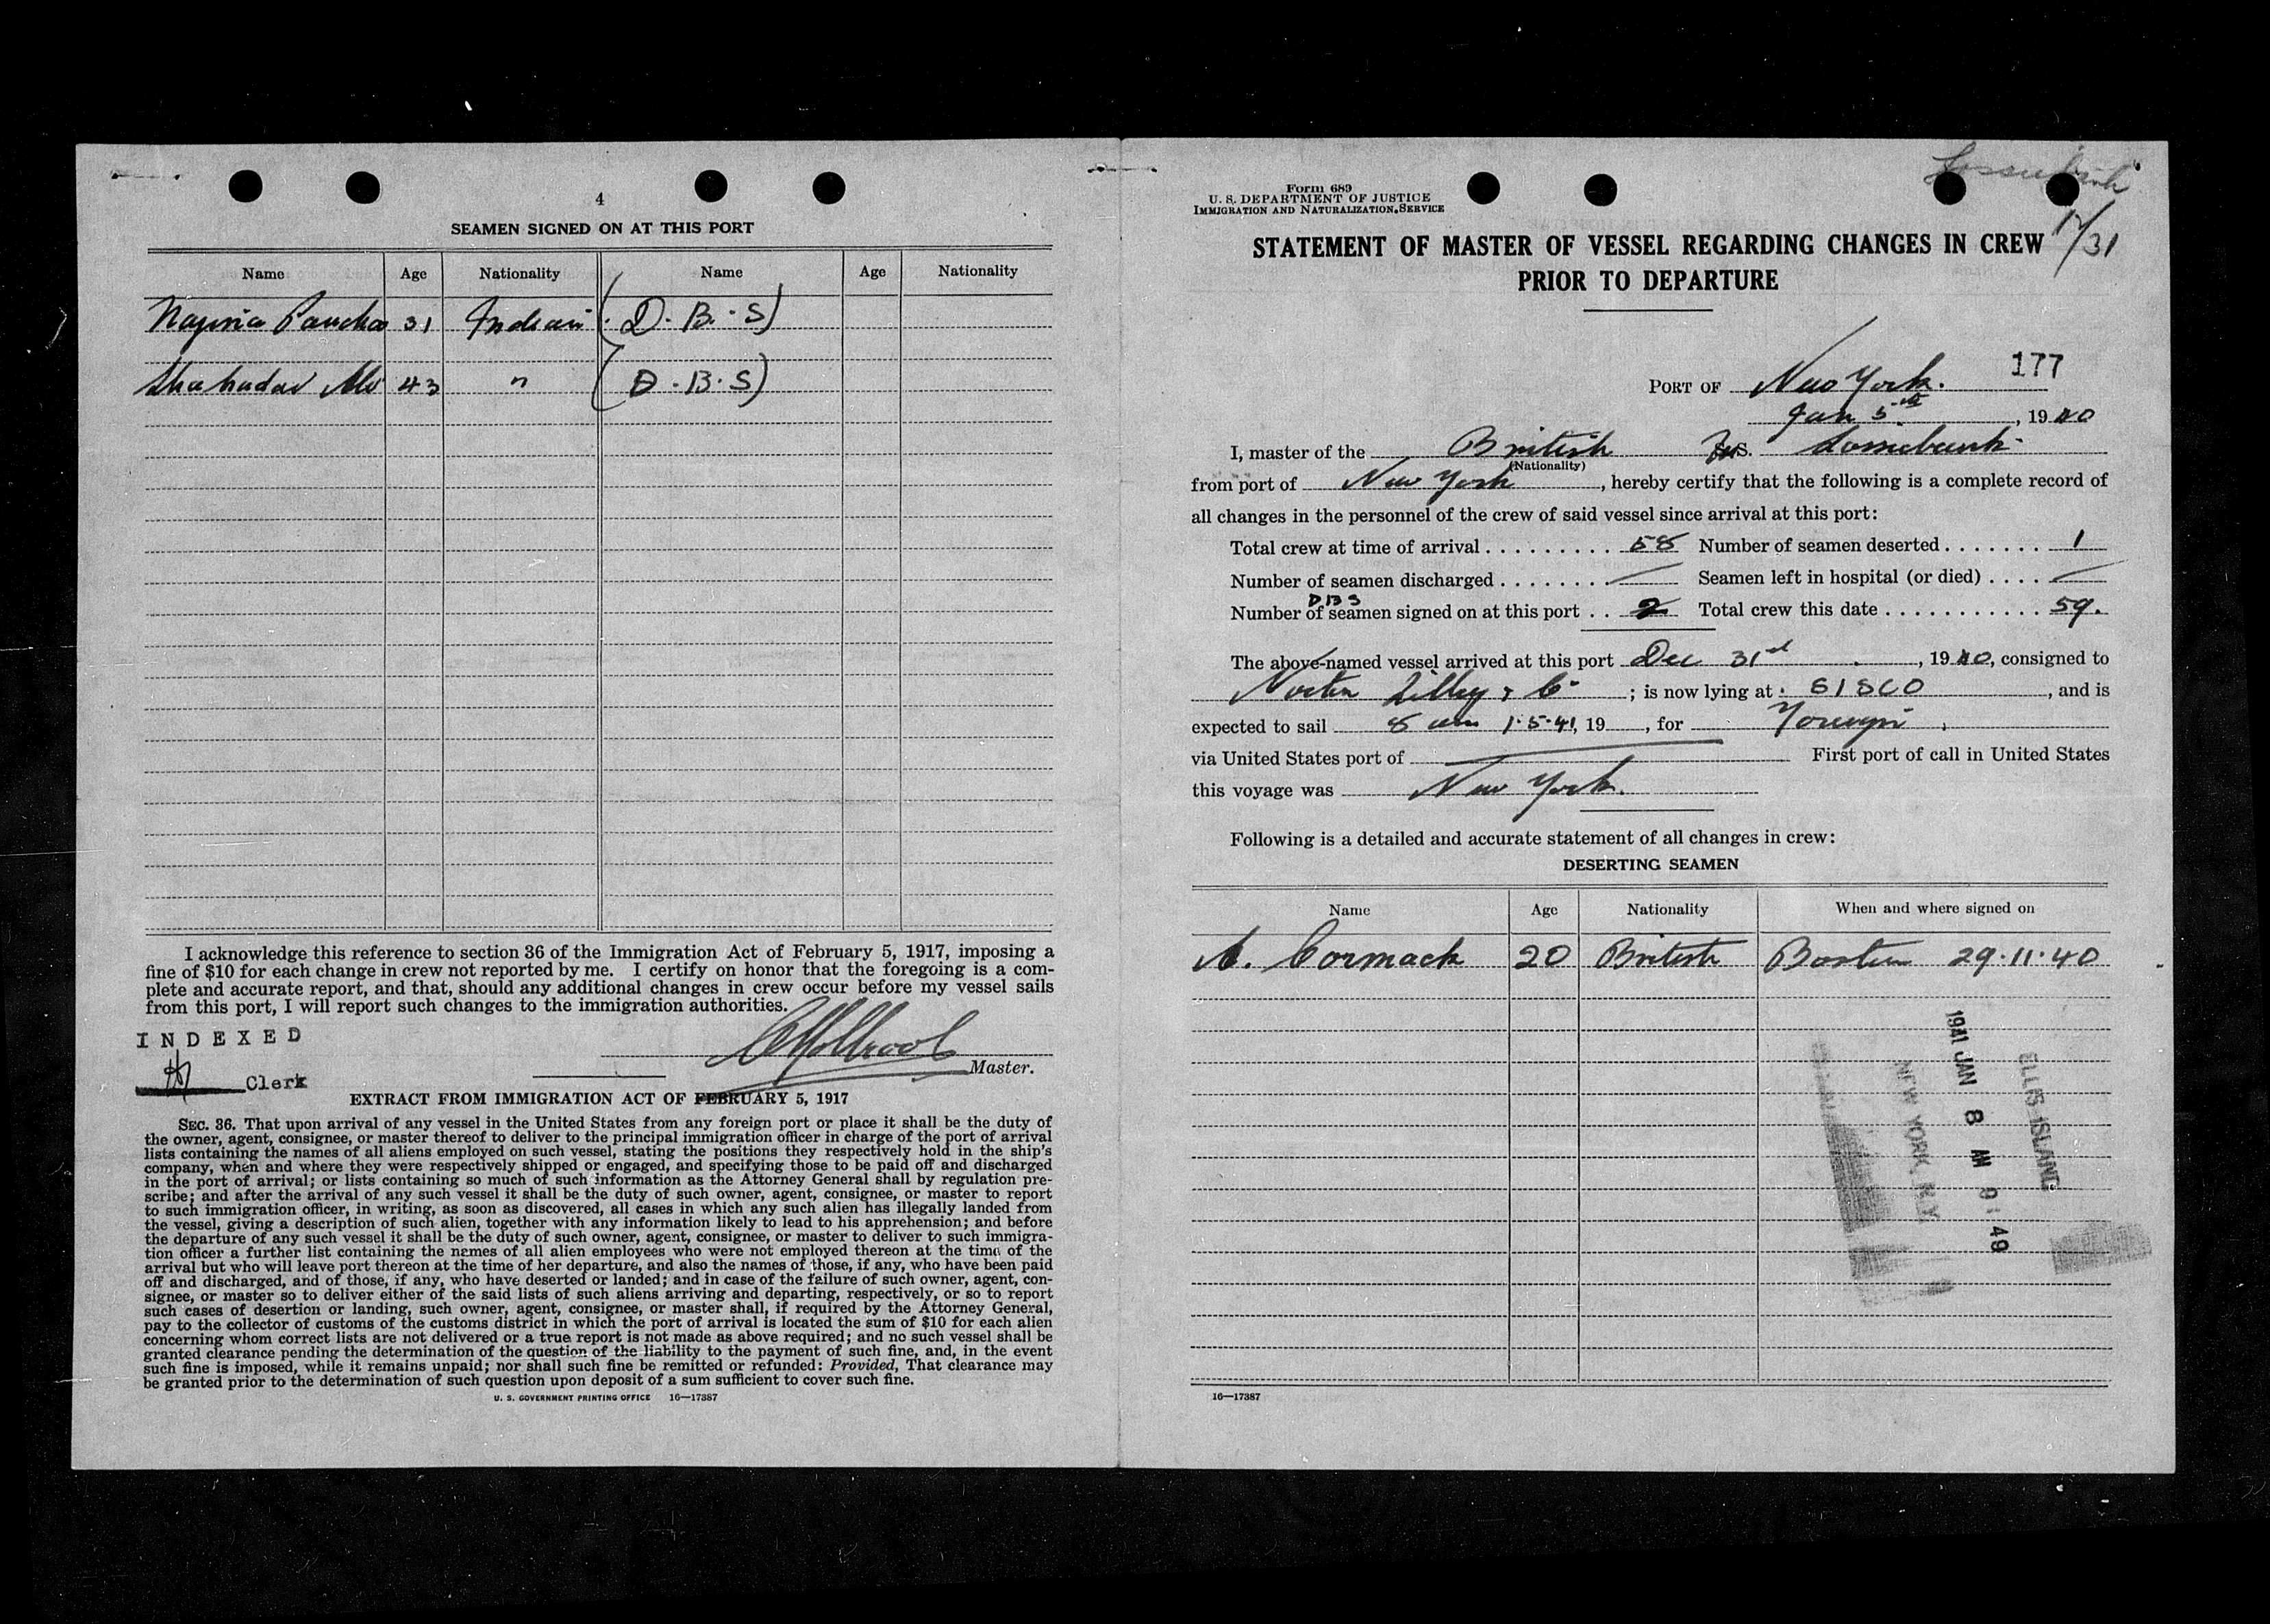 4
SEAMEN SIGNED ON AT THIS PORT
Name Age Nationality Name Age Nationality
31 Indian (D. B. S)
43 " (D. B. S)
I acknowledge this reference to section 36 of the Immigration Act of February 5, 1917, imposing a
fine of $10 for each change in crew not reported by me. I certify on honor that the foregoing is a com-
plete and accurate report, and that, should any additional changes in crew occur before my vessel sails
from this port, I will report such changes to the immigration authorities.
INDEXED
Master.
Clerk
EXTRACT FROM IMMIGRATION ACT OF FEBRUARY 5, 1917
SEC. 36. That upon arrival of any vessel in the United States from any foreign port or place it shall be the duty of
the owner, agent, consignee, or master thereof to deliver to the principal immigration officer in charge of the port of arrival
lists containing the names of all aliens employed on such vessel, stating the positions they respectively hold in the ship's
company, when and where they were respectively shipped or engaged, and specifying those to be paid off and discharged
in the port of arrival; or lists containing so much of such information as the Attorney General shall by regulation pre-
scribe; and after the arrival of any such vessel it shall be the duty of such owner, agent, consignee, or master to report
to such immigration officer, in writing, as soon as discovered, all cases in which any such alien has illegally landed from
the vessel, giving a description of such alien, together with any information likely to lead to his apprehension; and before
the departure of any such vessel it shall be the duty of such owner, agent, consignee, or master to deliver to such immigra-
tion officer a further list containing the names of all alien employees who were not employed thereon at the time of the
arrival but who will leave port thereon at the time of her departure, and also the names of those, if any, who have been paid
off and discharged, and of those, if any, who have deserted or landed; and in case of the failure of such owner, agent, con-
signee, or master so to deliver either of the said lists of such aliens arriving and departing, respectively, or so to report
such cases of desertion or landing, such owner, agent, consignee, or master shall, if required by the Attorney General,
pay to the collector of customs of the customs district in which the port of arrival is located the sum of $10 for each alien
concerning whom correct lists are not delivered or a true report is not made as above required; and no such vessel shall be
granted clearance pending the determination of the question of the liability to the payment of such fine, and, in the event
such fine is imposed, while it remains unpaid; nor shall such fine be remitted or refunded: Provided, That clearance may
be granted prior to the determination of such question upon deposit of a sum sufficient to cover such fine.
U. S. GOVERNMENT PRINTING OFFICE 16—17387
Form 689
U. S. DEPARTMENT OF JUSTICE
IMMIGRATION AND NATURALIZATION SERVICE
12/31
STATEMENT OF MASTER OF VESSEL REGARDING CHANGES IN CREW
PRIOR TO DEPARTURE
177
PORT OF New York.
Jan 5th, 1940
I, master of the British S. Lossiebank
(Nationality)
from port of New York, hereby certify that the following is a complete record of
all changes in the personnel of the crew of said vessel since arrival at this port:
Total crew at time of arrival . . . . . . . . . 58 Number of seamen deserted . . . . . . . 1
Number of seamen discharged . . . . . . . . Seamen left in hospital (or died) . . . .
DBS
Number of seamen signed on at this port . . 2 Total crew this date . . . . . . . . . . . 59.
The above-named vessel arrived at this port Dec 31st, 1940, consigned to
Norton Lilly & Co; is now lying at 61 SCO, and is
expected to sail 8 am 1.5.41, 19 , for
via United States port of First port of call in United States
this voyage was New York.
Following is a detailed and accurate statement of all changes in crew:
DESERTING SEAMEN
Name Age Nationality When and where signed on
A. Cormack 20 British Boston 29.11.40
ELLIS ISLAND
1941 JAN 8 AM 9 49
NEW YORK, N.Y.
16—17387